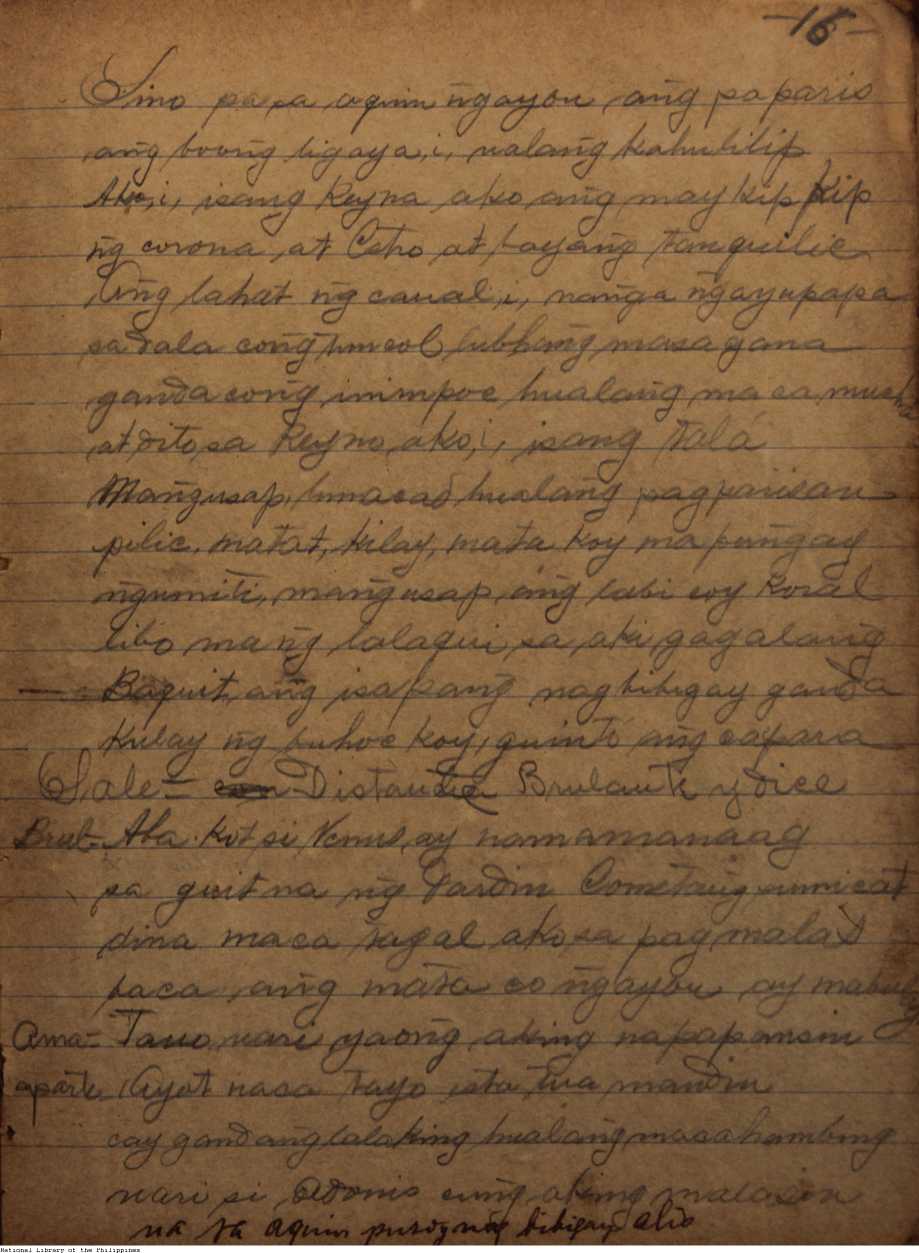 -16-
Sino pa sa aquin ngayon ang paparis
ang boong ligaya,i, ualang kahulilip
Ako,i, isang Reyna ako ang may kip kip
ng corona at Cetro at bayang tanguilic
Ang lahat ng caual,i, nanga ngayupapa
sa dala cong lubhang masagana
ganda cong inimpoc hualang maca mucha
at dito sa Reyno ako,i, isang Talá
Mangusap, lumacad hualang pagparisan
pilic, matat, kilay, mata koy mapungay
ngumiti, mangusap, ang labi coy koral
libo mang lalaqui sa aki,gagalang
Baquit ang isa pang nagbibigay ganda
Kulay ng buhoc koy, guintó ang capara
Sale- Distancia Brulante y dice
Brul- Aba kut si Venus, ay namamanaag
sa guit na ng Jardin Cometang sumicat
dina maca tagal ako sa pagmalas
baca ang mata co ngayon ay mabulag
Ama- Tauo uari yaong aking napapansin
aparte Ayot nasa tayo mandin
cay gandang lalaking hualang masahambing
uari si Adonis cung aking malasin
na sa aquin bibigay alio
National Library of the Philippines